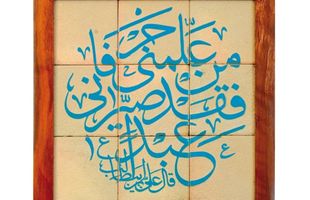 من علّمنی حرفا
فقد صیّرنی
عبدا
قال علی بن ابیطالب ع